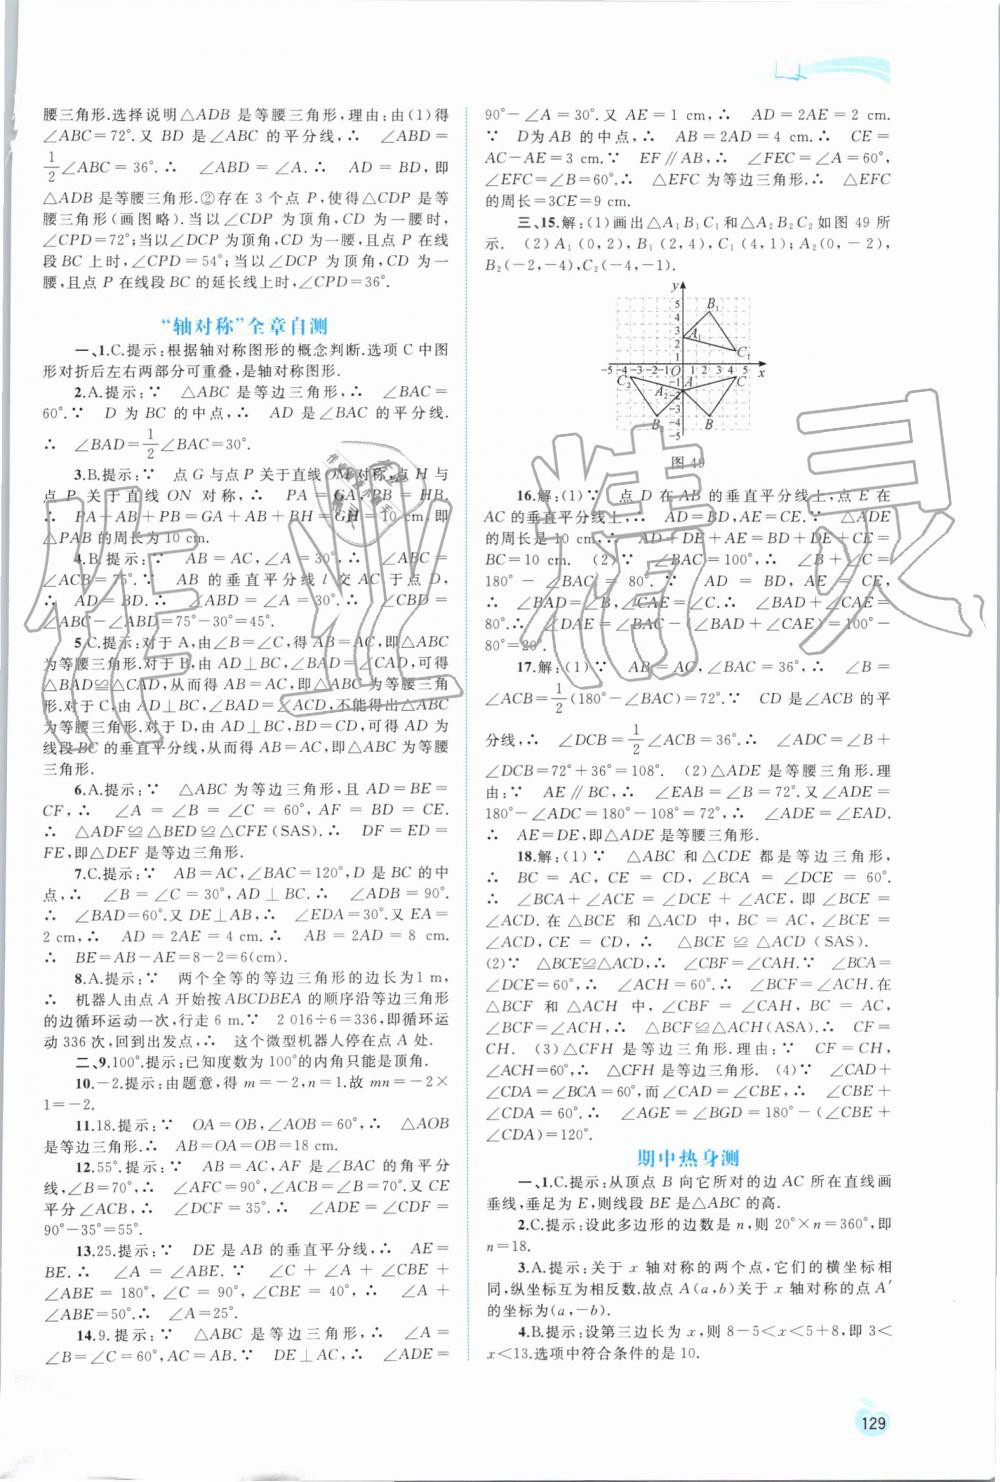 腰三角形.选择说明△ADB 是等腰三角形,理由:由(1)得
∠ABC=72°.又 BD 是∠ABC 的平分线,∴ ∠ABD=
1/2∠ABC=36°.∴ ∠ABD=∠A.∴ AD=BD,即
△ADB 是等腰三角形.②存在 3 个点 P,使得△CDP 是等腰
三角形(画图略).当以∠CDP 为顶角,CD 为一腰时,
∠CPD=72°;当以∠DCP 为顶角,CD 为一腰,且点 P 在线
段 BC 上时,∠CPD=54°;当以∠DCP 为顶角,CD 为一
腰,且点 P 在线段 BC 的延长线上时,∠CPD=36°.
“轴对称”全章自测
一、1.C.提示:根据轴对称图形的概念判断.选项 C 中图
形对折后左右两部分可重叠,是轴对称图形.
2.A.提示:∵ △ABC 是等边三角形,∴ ∠BAC=
60°.∵ D 为 BC 的中点,∴ AD 是∠BAC 的平分线.
∴ ∠BAD=1/2∠BAC=30°.
3.B.提示:∵ 点 G 与点 P 关于直线 OM 对称,点 H 与
点 P 关于直线 ON 对称,∴ PA=GA,PB=HB.
∴ PA+AB+PB=GA+AB+BH=GH=10 cm,即
△PAB 的周长为 10 cm.
4.B.提示:∵ AB=AC,∠A=30°,∴ ∠ABC=
∠ACB=75°.∵ AB 的垂直平分线 l 交 AC 于点 D,
∴ AD=BD.∴ ∠ABD=∠A=30°.∴ ∠CBD=
∠ABC-∠ABD=75°-30°=45°.
5.C.提示:对于 A,由∠B=∠C,得 AB=AC,即△ABC
为等腰三角形.对于 B,由 AD⊥BC,∠BAD=∠CAD,可得
△BAD≌△CAD,得 AB=AC,即△ABC 为等腰三角
形.对于 C,由 AD⊥BC,∠BAD=∠ACD,不能得出△ABC
为等腰三角形.对于 D,由 AD⊥BC,BD=CD,可得 AD 为
线段 BC 的垂直平分线,从而得 AB=AC,即△ABC 为等腰
三角形.
6.A.提示:∵ △ABC 为等边三角形,且 AD=BE=
CF,∴ ∠A=∠B=∠C=60°,AF=BD=CE.
∴ △ADF≌△BED≌△CFE(SAS).∴ DF=ED=
FE,即△DEF 是等边三角形.
7.C.提示:∵ AB=AC,∠BAC=120°,D 是 BC 的中
点,∴ ∠B=∠C=30°,AD⊥BC.∴ ∠ADB=90°.
∴ ∠BAD=60°.又 DE⊥AB,∴ ∠EDA=30°.又 EA=
2 cm,∴ AD=2AE=4 cm.∴ AB=2AD=8 cm.
∴ BE=AB-AE=8-2=6(cm).
8.A.提示:∵ 两个全等的等边三角形的边长为 1 m,
∴ 机器人由点 A 开始按 ABCDBEA 的顺序沿等边三角形
的边循环运动一次,行走 6 m.∵ 2 016÷6=336,即循环运
动 336 次,回到出发点,∴ 这个微型机器人停在点 A 处.
二、9.100°.提示:已知度数为 100°的内角只能是顶角.
10.-2.提示:由题意,得 m=-2,n=1.故 mn=-2×
1=-2.
11.18.提示:∵ OA=OB,∠AOB=60°,∴ △AOB
是等边三角形.∴ AB=OA=OB=18 cm.
12.55°.提示:∵ AB=AC,AF 是∠BAC 的角平分
线,∠B=70°,∴ ∠AFC=90°,∠ACB=∠B=70°.又 CE
平分∠ACB,∴ ∠DCF=35°.∴ ∠ADE=∠CDF=
90°-35°=55°.
13.25.提示:∵ DE 是 AB 的垂直平分线,∴ AE=
BE.∴ ∠A=∠ABE.∵ ∠C+∠A+∠CBE+
∠ABE=180°,∠C=90°,∠CBE=40°,∴ ∠A+
∠ABE=50°.∴ ∠A=25°.
14.9.提示:∵ △ABC 是等边三角形,∴ ∠A=
∠B=∠C=60°,AC=AB.∵ DE⊥AC,∴ ∠ADE=
90°-∠A=30°.又 AE=1 cm,∴ AD=2AE=2 cm.
∵ D为 AB 的中点,∴ AB=2AD=4 cm.∴ CE=
AC-AE=3 cm.∵ EF∥AB,∴ ∠FEC=∠A=60°,
∠EFC=∠B=60°.∴ △EFC 为等边三角形.∴ △EFC
的周长=3CE=9 cm.
三、15.解:(1)画出△A₁B₁C₁和△A₂B₂C₂如图 49 所
示. (2)A₁(0,2),B₁(2,4),C₁(4,1);A₂(0,-2),
B₂(-2,-4),C₂(-4,-1).
图 49
16.解:(1)∵ 点 D 在 AB 的垂直平分线上,点 E 在
AC 的垂直平分线上,∴ AD=BD,AE=CE.∵ △ADE
的周长是 10 cm,∴ AD+DE+AE=BD+DE+CE=
BC=10 cm. (2)∵ ∠BAC=100°,∴ ∠B+∠C=
180°-∠BAC=80°.∵ AD=BD,AE=CE,
∴ ∠BAD=∠B,∠CAE=∠C.∴ ∠BAD+∠CAE=
80°.∴ ∠DAE=∠BAC-(∠BAD+∠CAE)=100°-
80°=20°.
17.解:(1)∵ AB=AC,∠BAC=36°,∴ ∠B=
∠ACB=1/2(180°-∠BAC)=72°.∵ CD 是∠ACB 的平
分线,∴ ∠DCB=1/2∠ACB=36°.∴ ∠ADC=∠B+
∠DCB=72°+36°=108°. (2)△ADE 是等腰三角形.理
由:∵ AE∥BC,∴ ∠EAB=∠B=72°.又∠ADE=
180°-∠ADC=180°-108°=72°,∴ ∠ADE=∠EAD.
∴ AE=DE,即△ADE 是等腰三角形.
18.解:(1)∵ △ABC 和△CDE 都是等边三角形,
∴ BC=AC,CE=CD,∠BCA=∠DCE=60°.
∴ ∠BCA+∠ACE=∠DCE+∠ACE,即∠BCE=
∠ACD.在△BCE 和△ACD 中,BC=AC,∠BCE=
∠ACD,CE=CD,∴ △BCE≌△ACD(SAS).
(2)∵ △BCE≌△ACD,∴ ∠CBF=∠CAH.∵ ∠BCA=
∠DCE=60°,∴ ∠ACH=60°.∴ ∠BCF=∠ACH.在
△BCF 和△ACH 中,∠CBF=∠CAH,BC=AC,
∠BCF=∠ACH,∴ △BCF≌△ACH(ASA).∴ CF=
CH. (3)△CFH 是等边三角形.理由:∵ CF=CH,
∠ACH=60°,∴ △CFH 是等边三角形. (4)∵ ∠CAD+
∠CDA=∠BCA=60°,而∠CAD=∠CBE,∴ ∠CBE+
∠CDA=60°.∴ ∠AGE=∠BGD=180°-(∠CBE+
∠CDA)=120°.
期中热身测
一、1.C.提示:从顶点 B 向它所对的边 AC 所在直线画
垂线,垂足为 E,则线段 BE 是△ABC 的高.
2.C.提示:设此多边形的边数是 n,则 20°×n=360°,即
n=18.
3.A.提示:关于 x 轴对称的两个点,它们的横坐标相
同,纵坐标互为相反数.故点 A(a,b)关于 x 轴对称的点 A′
的坐标为(a,-b).
4.B.提示:设第三边长为 x,则 8-5<x<5+8,即 3<
x<13.选项中符合条件的是 10.
129
作业精灵